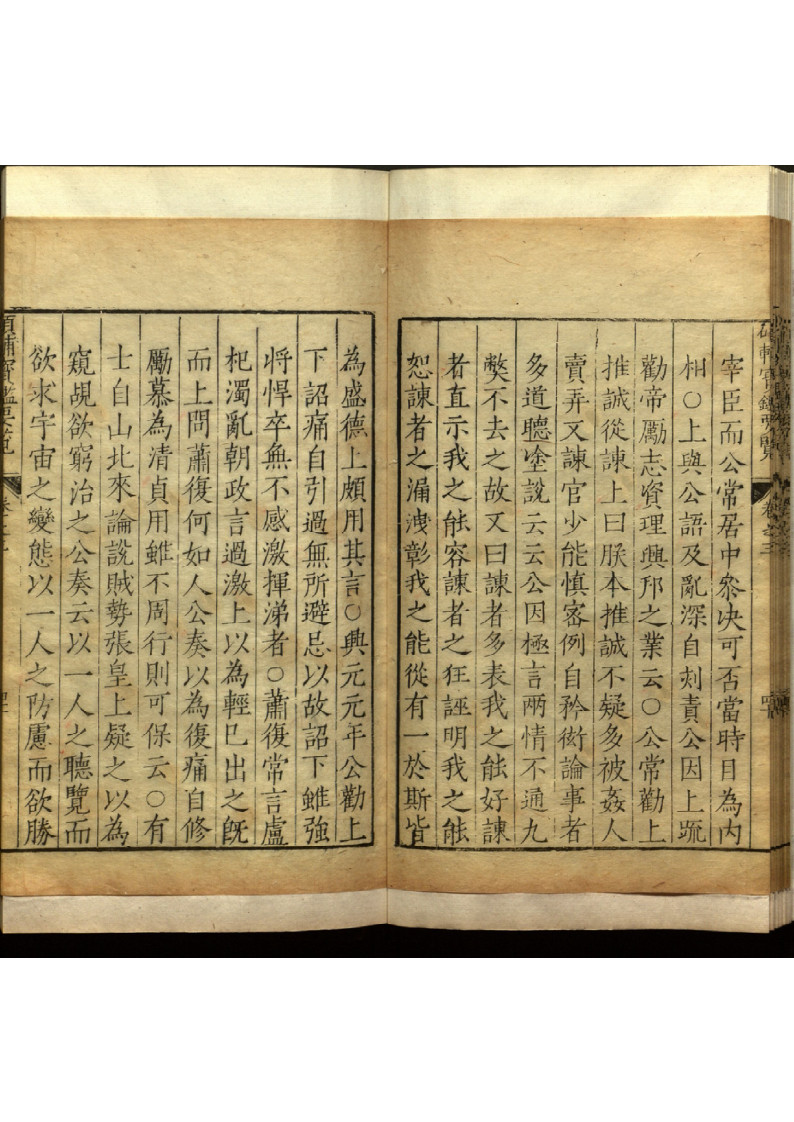 宰臣而公常居中叅决可否當時目為内
相○上與公語及亂深自刻責公因上䟽
勸帝勵志資理興邦之業云○公常勸上
推誠從諫上曰朕本推誠不疑多被姦人
賣弄又諫官少能慎宻例自矜衒論事者
多道聽塗說云云公因極言兩情不通九
獘不去之故又曰諫者多表我之能好諫
者直示我之能容諫者之狂誣明我之能
恕諫者之漏洩彰我之能從有一於斯皆
為盛德上頗用其言○興元元年公勸上
下詔痛自引過無所避忌以故詔下雖強
將悍卒無不感激揮涕者○蕭復常言盧
杞濁亂朝政言過激上以為輕已出之旣
而上問蕭復何如人公奏以為復痛自修
勵慕為清貞用雖不周行則可保云○有
士自山北來論說賊勢張皇上疑之以為
窺覘欲窮治之公奏云以一人之聽覽而
欲求宇宙之變態以一人之防慮而欲勝